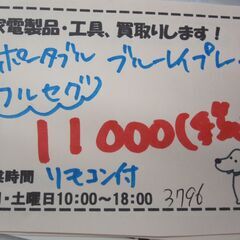 家電製品・工具、買取りします!
ポータブル ブルーレイプレ
フルセグ
11000(税
業時間 リモコン付
・土曜日10:00～18:00 3796